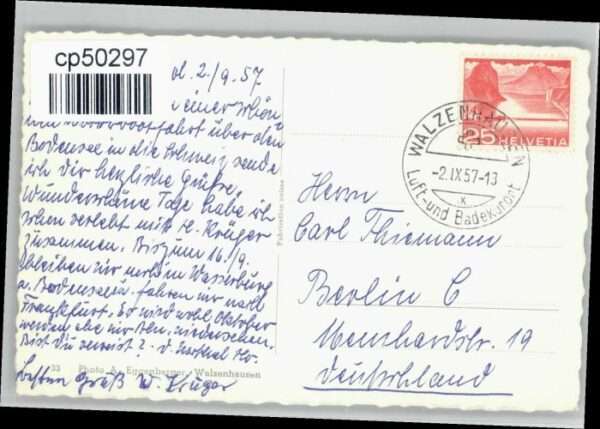 cp50297
d. 2./9.57
einer schön
fahrt über den
Bodensee in die Schweiz sende
ich dir herzliche Grüße.
Wunderschöne Tage habe ich
schon verlebt mit H. Krüger
zusammen. Bis zum 16./9.
bleiben wir noch in Wasserburg
a. Bodensee, fahren wir nach
Frankfurt. Es wird wohl Oktober
werden ehe wir wiedersehen.
Bist Du verreist?
Besten Gruß W. Krüger
33 Photo A. Eggenberger, Walzenhausen
Fabrication suisse
WALZENHAUSEN
-2.IX57-13
Luft- und Badekurort
25 HELVETIA
Herrn
Carl Thiemann
Berlin C
19
Deutschland